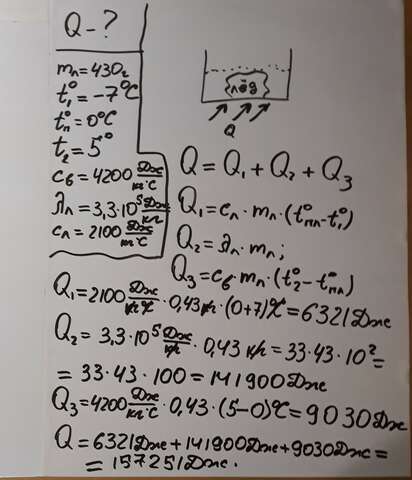 Q - ?
mл = 430г
t₁° = -7°C
tп° = 0°C
t₂ = 5°
cв = 4200 Дж/кг°C
λл = 3,3·10⁵ Дж/кг
cл = 2100 Дж/кг°C
лёд
Q
Q = Q₁ + Q₂ + Q₃
Q₁ = cл · mл · (t°пл - t₁°)
Q₂ = λл · mл;
Q₃ = cв · mл · (t₂° - t°пл)
Q₁ = 2100 Дж/кг°C · 0,43 кг · (0+7)°C = 6321 Дж
Q₂ = 3,3·10⁵ Дж/кг · 0,43 кг = 33·43·10² =
= 33·43·100 = 141900 Дж
Q₃ = 4200 Дж/кг°C · 0,43 · (5-0)°C = 9030 Дж
Q = 6321 Дж + 141900 Дж + 9030 Дж =
= 157251 Дж.